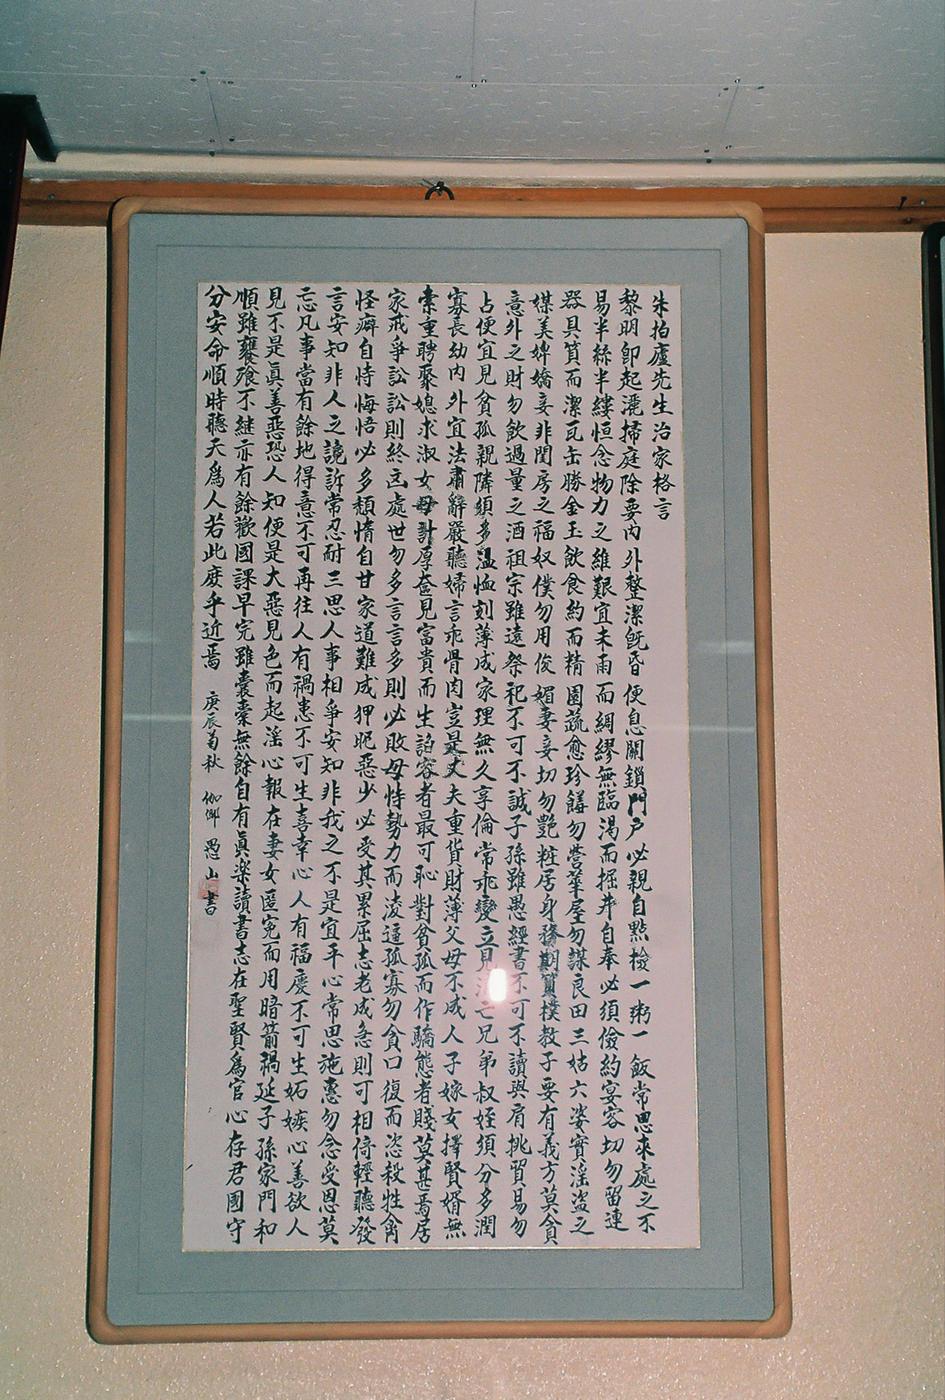 朱柏廬先生治家格言
黎明卽起灑掃庭除要內外整潔旣昏便息關鎖門戶必親自點檢一粥一飯常思來處之不
易半絲半縷恒念物力之維艱宜未雨而綢繆無臨渴而掘井自奉必須儉約宴客切勿留連
器具質而潔瓦缶勝金玉飲食約而精園蔬愈珍饈勿營華屋勿謀良田三姑六婆實淫盜之
媒美婢嬌妾非閨房之福奴僕勿用俊媚妻妾切勿艷粧居身務期質樸敎子要有義方莫貪
意外之財勿飲過量之酒祖宗雖遠祭祀不可不誠子孫雖愚經書不可不讀與肩挑貿易勿
占便宜見貧孤親隣須多溫恤刻薄成家理無久享倫常乖變立見消亡兄弟叔姪須分多潤
寡長幼內外宜法肅辭嚴聽婦言乖骨肉豈是丈夫重貨財薄父母不成人子嫁女擇賢婿無
索重聘娶媳求淑女毋計厚奩見富貴而生諂容者最可恥對貧孤而作驕態者賤莫甚焉居
家戒爭訟訟則終凶處世勿多言言多則必敗毋恃勢力而凌逼孤寡勿貪口復而恣殺牲禽
怪癖自恃悔悟必多頹惰自甘家道難成狎昵惡少必受其累屈志老成急則可相倚輕聽發
言安知非人之譭訴常忍耐三思人事相爭安知非我之不是宜平心常思施惠勿念受恩莫
忘凡事當有餘地得意不可再往人有禍患不可生喜幸心人有福慶不可生妬嫉心善欲人
見不是眞善惡恐人知便是大惡見色而起淫心報在妻女匿寃而用暗箭禍延子孫家門和
順雖饔飧不継亦有餘歡國課早完雖囊橐無餘自有眞楽讀書志在聖賢爲官心存君國守
分安命順時聽天爲人若此庶乎近焉 庚辰菊秋 伽倻 愚山 書